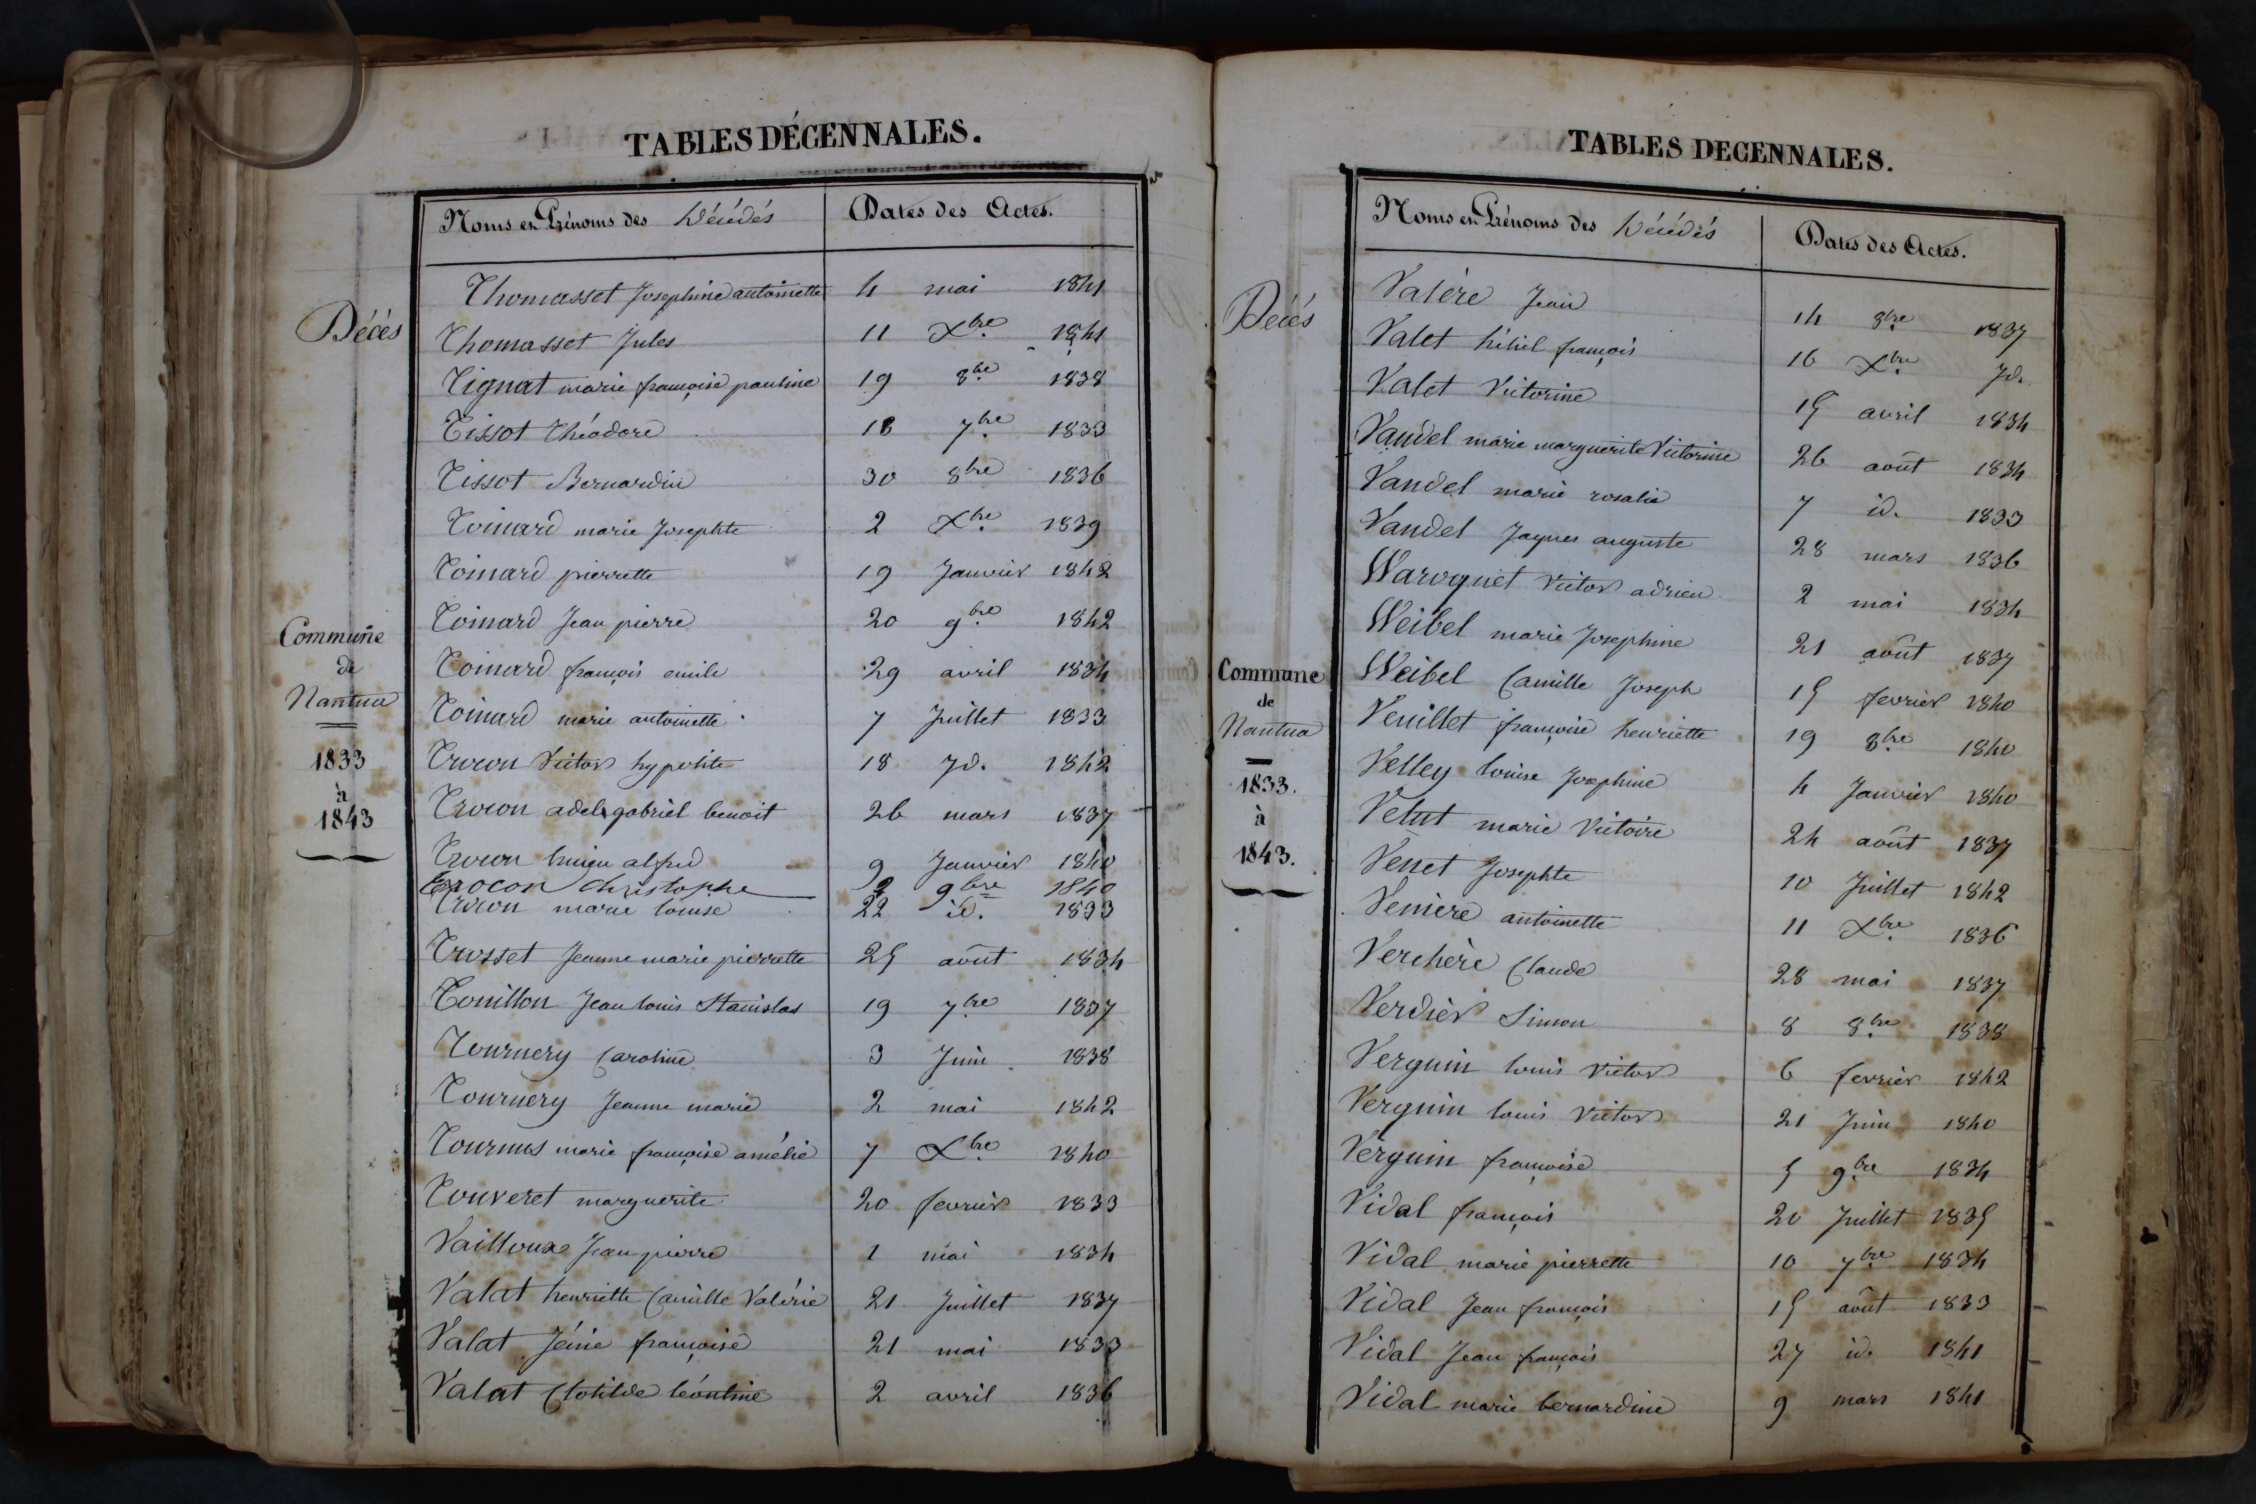 TABLES DÉCENNALES.
Noms et Prénoms des Décédés Dates des Actes.
Décès
Commune
de
Nantua
1833
à
1843
Thomasset Josephine antoinette 4 mai 1841
Thomasset Jules 11 Xbre 1841
Tignat marie françoise pauline 19 8bre 1838
Tissot Théodore 18 7bre 1833
Tissot Bernardin 30 8bre 1836
Toinard marie Josephte 2 Xbre 1839
Toinard pierrette 19 Janvier 1842
Toinard Jean pierre 20 9bre 1842
Toinard françois emile 29 avril 1834
Toinard marie antoinette 7 Juillet 1833
Trocon Victor hypolite 18 Jd. 1842
Trocon adele gabriel benoit 26 mars 1837
Trocon alfred 9 Janvier 1840
Trocon Christophe 2 9bre 1840
Trocon marie louise 22 id. 1833
Trosset Jeanne marie pierrette 25 août 1834
Touillon Jean louis Stanislas 19 7bre 1837
Tournery Caroline 3 Juin 1838
Tournery Jeanne marie 2 mai 1842
Tournus marie françoise amélie 7 Xbre 1840
Touveret marguerite 20 fevrier 1833
Vailloux Jean pierre 1 mai 1834
Valat henriette Camille Valérie 21 Juillet 1837
Valat Jénie françoise 21 mai 1833
Valat Clotilde léontine 2 avril 1836
TABLES DECENNALES.
Noms et Prénoms des Décédés Dates des Actes.
Décés
Commune
de
Nantua
1833.
à
1843.
Valère Jean 14 8bre 1837
Valet françois 16 Xbre Jd.
Valet Victorine 15 avril 1834
Vandel marie marguerite Victorine 26 août 1834
Vandel marie rosalie 7 id. 1833
Vandel Jaques auguste 28 mars 1836
Waroquet Victor adrien 2 mai 1834
Weibel marie Josephine 21 août 1837
Weibel Camille Joseph 15 fevrier 1840
Veuillet françoise henriette 19 8bre 1840
Velley louise Josephine 4 Janvier 1840
Velut marie Victoire 24 août 1837
Venet Josephte 10 Juillet 1842
Veniere antoinette 11 Xbre 1836
Verchère Claude 28 mai 1837
Verdier Simon 8 8bre 1838
Verguin louis Victor 6 fevrier 1842
Verguin louis Victor 21 Juin 1840
Verguin françoise 5 9bre 1834
Vidal françois 20 Juillet 1835
Vidal marie pierrette 10 7bre 1834
Vidal Jean françois 15 août 1833
Vidal Jean françois 27 id. 1841
Vidal marie bernardine 9 mars 1841